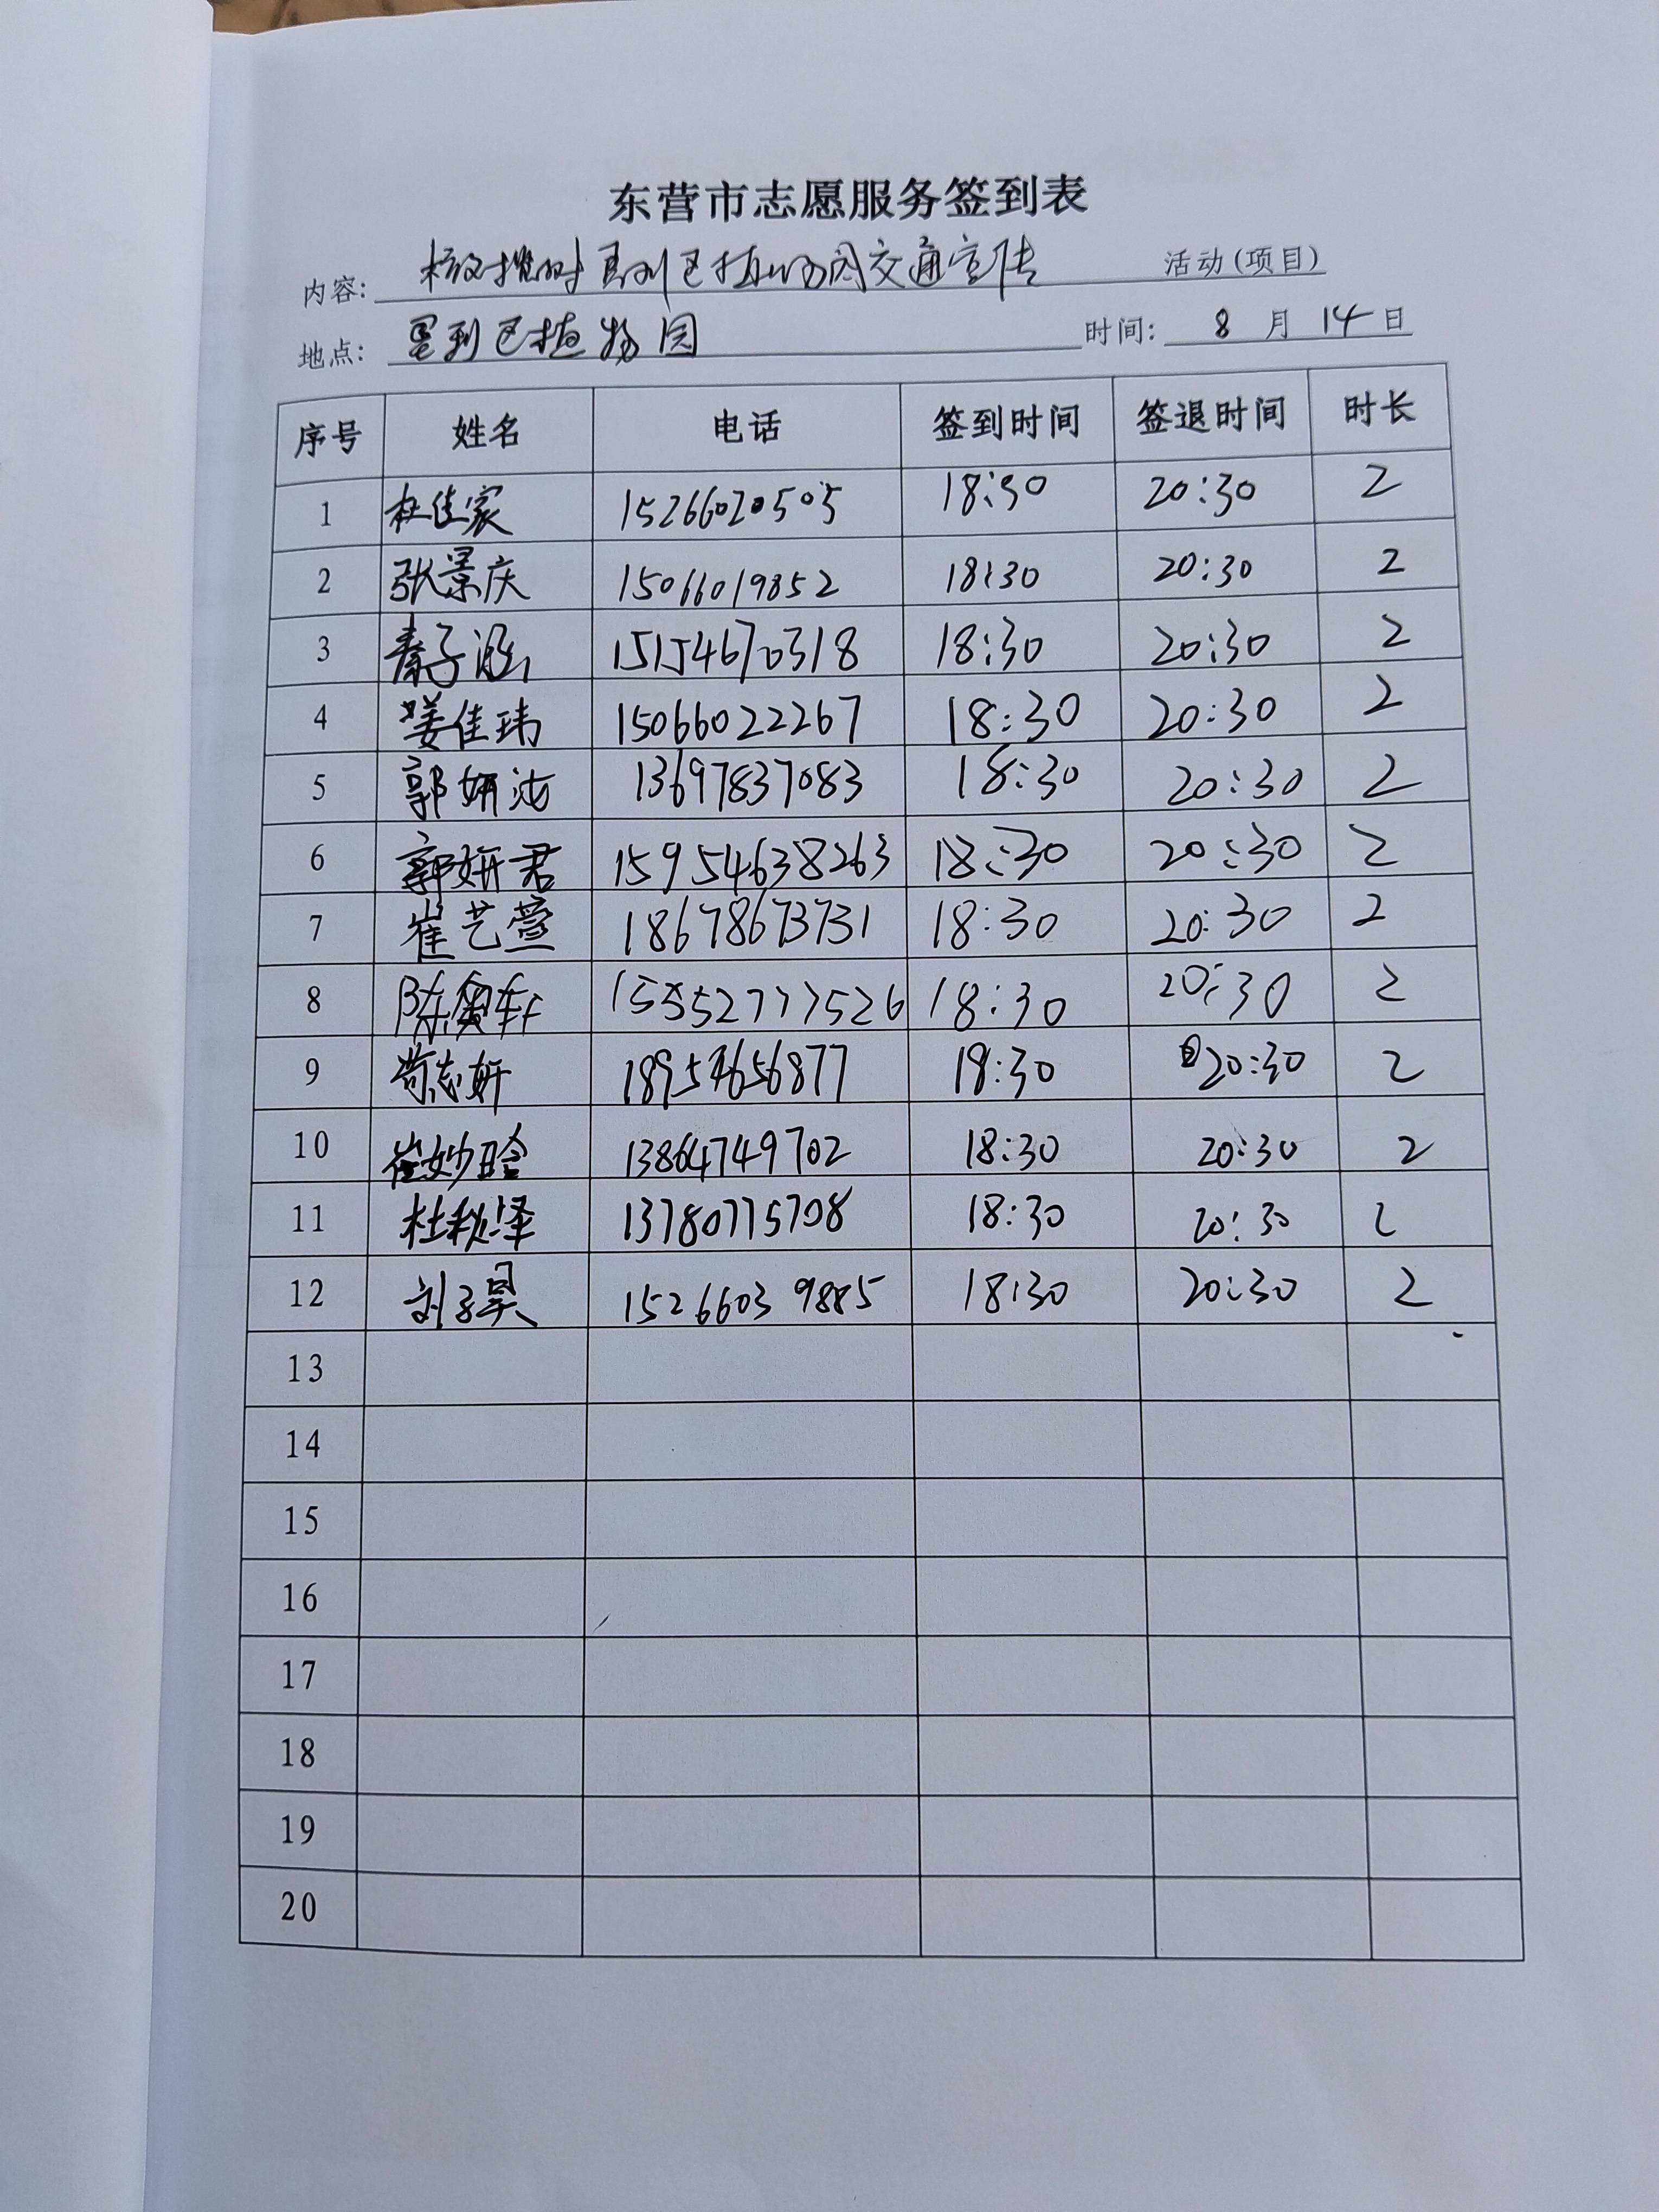 东营市志愿服务签到表
内容: 交通宣传 活动(项目)
地点: 垦利区植物园 时间: 8 月 14 日
序号 姓名 电话 签到时间 签退时间 时长
1 杜佳家 15266020505 18:30 20:30 2
2 张景庆 15066019852 18:30 20:30 2
3 秦子涵 15154670318 18:30 20:30 2
4 姜佳玮 15066022267 18:30 20:30 2
5 郭妍 13697837083 18:30 20:30 2
6 郭妍君 15954638263 18:30 20:30 2
7 崔艺萱 18678673731 18:30 20:30 2
8 陈奕轩 15552777526 18:30 20:30 2
9 苟志妍 18954656877 18:30 20:30 2
10 崔妙晗 13864749702 18:30 20:30 2
11 杜秋泽 13780775708 18:30 20:30 2
12 刘子昊 15266039885 18:30 20:30 2
13
14
15
16
17
18
19
20